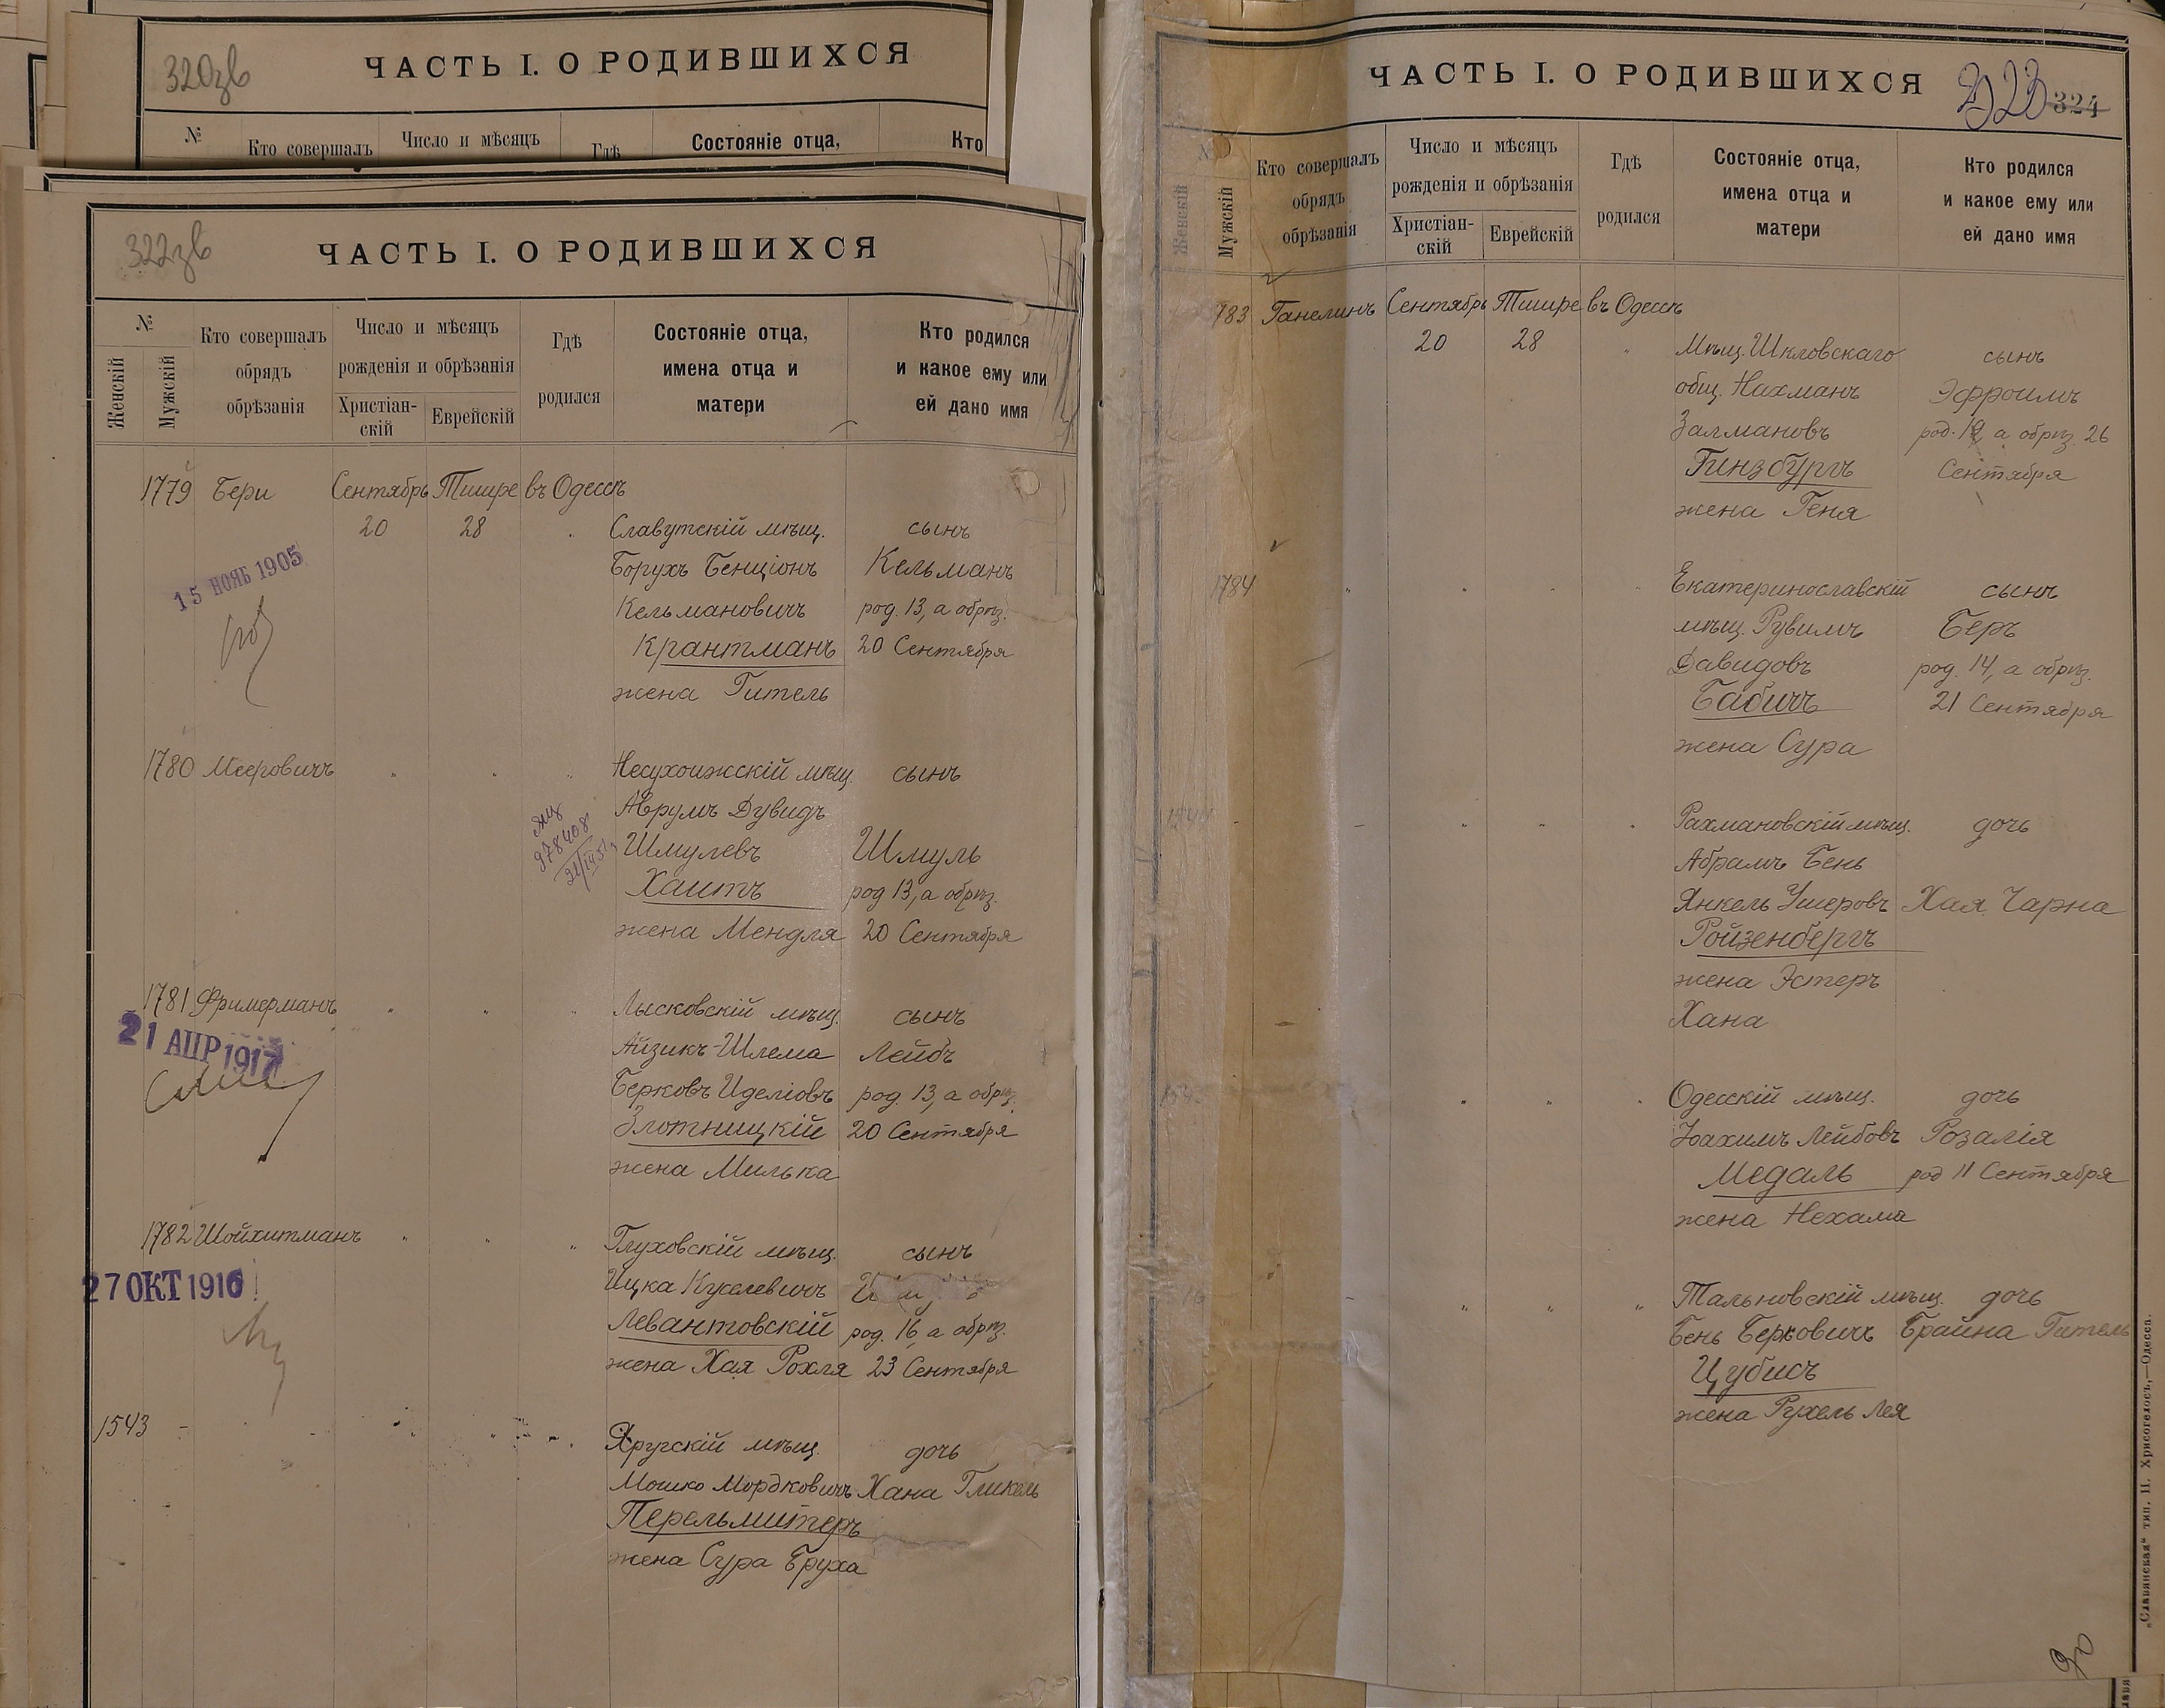 320зв
ЧАСТЬ I. О РОДИВШИХСЯ
№
Кто совершалъ
Число и мѣсяцъ
Гдѣ
Состояніе отца,
Кто
322зв
ЧАСТЬ I. О РОДИВШИХСЯ
№
Женскій
Мужскій
Кто совершалъ
обрядъ
обрѣзанія
Число и мѣсяцъ
рожденія и обрѣзанія
Христіан-
скій
Еврейскій
Гдѣ
родился
Состояніе отца,
имена отца и
матери
Кто родился
и какое ему или
ей дано имя
1779 Бери Сентябрь Тишре въ Одессѣ
20 28 Славутскій мѣщ. сынъ
15 НОЯБ 1905
Борухъ Бенціонъ Кельманъ
Кельмановичъ род. 13, а обрѣз.
Крантманъ 20 Сентября
жена Гитель
1780 Мееровичъ " " " Несухоижскій мѣщ. сынъ
Аврумъ Дувидъ
978408
Шмулевъ Шмуль
Хаитъ род 13, а обрѣз.
жена Мендля 20 Сентября
1781 Фримерманъ " " " Лысковскій мѣщ. сынъ
21 АПР 1917
Айзикъ-Шлема Лейбъ
Берковъ Иделіовъ род. 13, а обрѣз.
Злотницкій 20 Сентября
жена Милька
1782 Шойхитманъ " " " Глуховскій мѣщ. сынъ
27 ОКТ 1916
Ицка Куселевичъ
Левантовскій род. 16, а обрѣз.
жена Хая Рохля 23 Сентября
1543 - - " " " Яругскій мѣщ. дочь
Мошко Мордковичъ Хана Гликель
Перельмитеръ
жена Сура Бруха
ЧАСТЬ I. О РОДИВШИХСЯ
323 324
Женскій
Мужскій
Кто совершалъ
обрядъ
обрѣзанія
Число и мѣсяцъ
рожденія и обрѣзанія
Христіан-
скій
Еврейскій
Гдѣ
родился
Состояніе отца,
имена отца и
матери
Кто родился
и какое ему или
ей дано имя
783 Ганелинъ Сентябрь Тишре въ Одессѣ
20 28 " Мѣщ. Шкловскаго сынъ
общ. Нахманъ Эфроимъ
Залмановъ род. 19, а обрѣз. 26
Гинзбургъ Сентября
жена Геня
1784 " " " " Екатеринославскій сынъ
мѣщ. Рувимъ Беръ
Давидовъ род. 14, а обрѣз.
Бабичъ 21 Сентября
жена Сура
1544 - - " " " Рахмановскій мѣщ. дочь
Абрамъ Бень
Янкель Ушеровъ Хая Чарна
Ройзенбергъ
жена Эстеръ
Хана
" " " Одесскій мѣщ. дочь
Іоахимъ Лейбовъ Розалія
Медаль род 11 Сентября
жена Нехама
- " " " Тальновскій мѣщ. дочь
Бень Берковичъ Брайна Гитель
Цубисъ
жена Рухель Лея
„Славянская“ тип. Н. Хрисогелосъ,—Одесса.